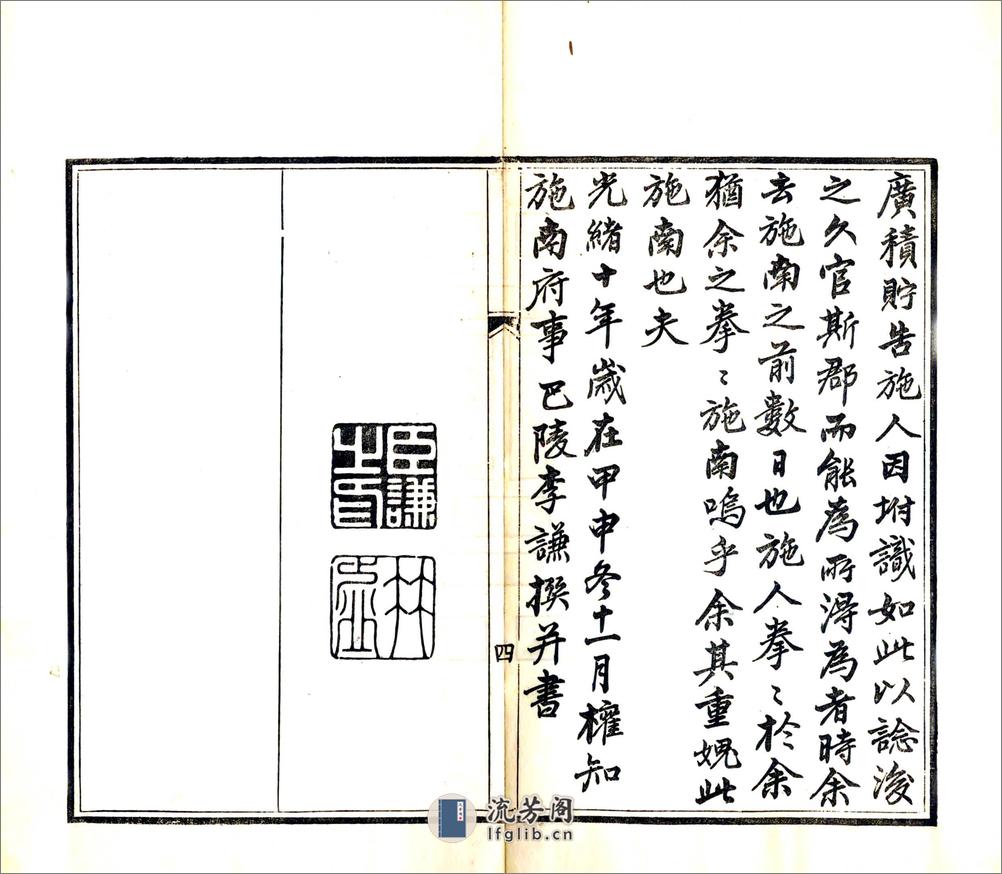 廣積貯告施人因坿識如此以諗後
之久官斯郡而能為所得為者時余
去施南之前數日也施人拳〻於余
猶余之拳〻施南嗚乎余其重媿此
施南也夫
光緒十年歲在甲申冬十一月權知
施南府事巴陵李謙撰并書
四
臣謙之印
流芳阁
lfglib.cn